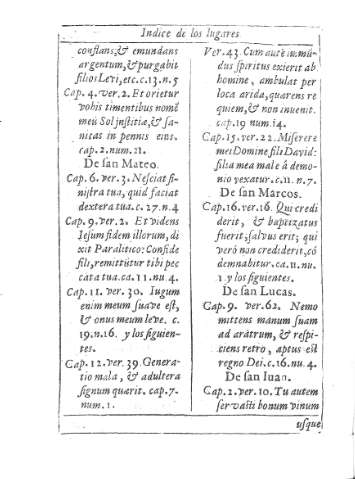 Indice de los lugares
conflans, & emundans
argentum, & purgabit
filios Levi, etc. c.13. n.5
Cap. 4. ver. 2. Et orietur
vobis timentibus nomē
meū Sol justitia, & sa-
nitas in pennis eius.
cap. 2. num. 21.
De san Mateo.
Cap. 6. ver. 3. Nesciat si-
nistra tua, quid faciat
dextera tua. c. 27. n. 4
Cap. 9. ver. 2. Et videns
Iesus fidem illorum, di
xit Paralitico: Confide
fili, remittūtur tibi pec
cata tua. ca. 11. nu. 4.
Cap. 11. ver. 30. Iugum
enim meum suave est,
& onus meum leve. c.
19. n. 16. y los siguien-
tes.
Cap. 12. ver. 39. Genera-
tio mala, & adultera
signum quærit. cap. 7.
num. 1.
Ver. 43. Cum autē immū-
dus spiritus exierit ab
homine, ambulat per
loca arida, quarens re
quiem, & non invenit.
cap. 19 num. 14.
Cap. 15. ver. 22. Miserere
mei Domine fili David:
filia mea male à demo-
nio vexatur. c. 11. n. 7.
De san Marcos.
Cap. 16. ver. 16. Qui credi
derit, & baptizatus
fuerit, salvus erit; qui
verò non crediderit, cō
demnabitur. ca. 11. nu.
1 y los siguientes.
De san Lucas.
Cap. 9. ver. 62. Nemo
mittens manum suam
ad arātrum, & respi-
ciens retro, aptus est
regno Dei. c. 16. nu. 4.
De san Iuan.
Cap. 2. ver. 10. Tu autem
servasti bonum vinum
usque